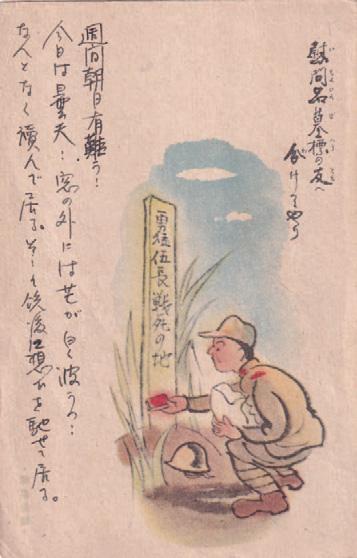 慰問品墓標の友へ
分けてやり
勇猛伍長戦死の地
週間朝日有難う！
今日は曇天：窓の外には芒が白く波うつ：
なんとなく讀んで居る。そして銃後に想ひを馳せて居る。